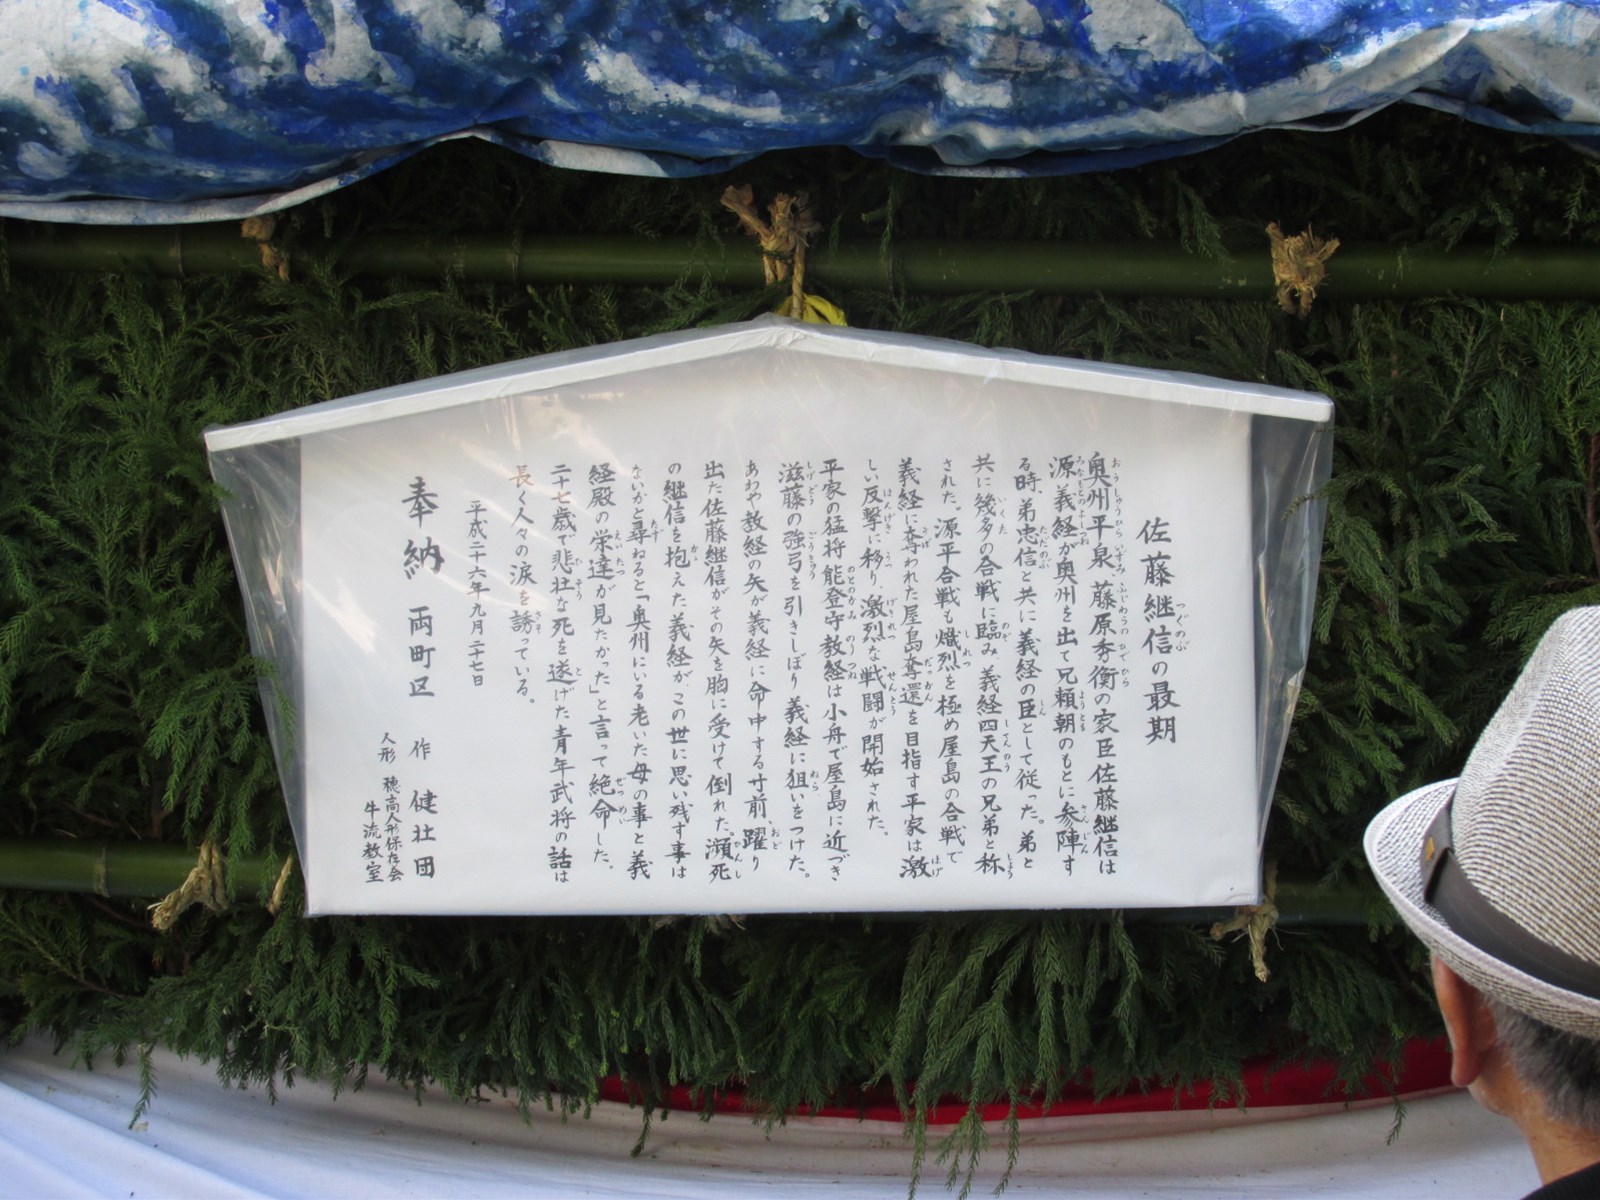 佐藤継信の最期
奥州平泉、藤原秀衡の家臣佐藤継信は
源義経が奥州を出て兄頼朝のもとに参陣す
る時、弟忠信と共に義経の臣として従った。弟と
共に幾多の合戦に臨み、義経四天王の兄弟と称
された。源平合戦も熾烈を極め屋島の合戦で
義経に奪われた屋島奪還を目指す平家は激
しい反撃に移り、激烈な戦闘が開始された。
平家の猛将能登守教経は小舟で屋島に近づき
滋藤の強弓を引きしぼり義経に狙いをつけた。
あわや教経の矢が義経に命中する寸前、躍り
出た佐藤継信がその矢を胸に受けて倒れた。瀕死
の継信を抱えた義経が、この世に思い残す事は
ないかと尋ねると「奥州にいる老いた母の事と義
経殿の栄達が見たかった」と言って絶命した。
二十七歳で悲壮な死を遂げた青年武将の話は
長く人々の涙を誘っている。
平成二十六年九月二十七日
奉納 両町区 作 健壮団
人形 穂高人形保存会
牛流教室